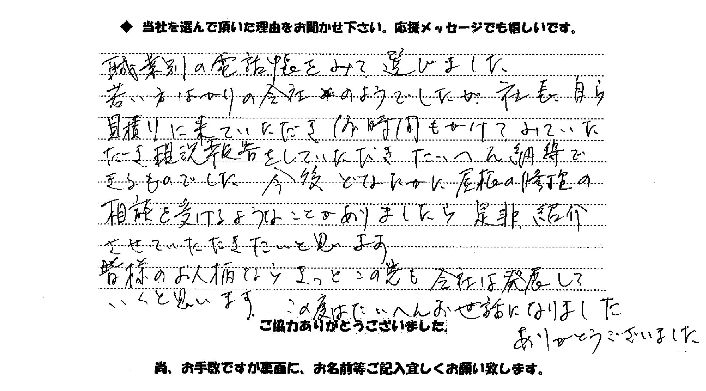 ◆ 当社を選んで頂いた理由をお聞かせ下さい。応援メッセージでも嬉しいです。
職業別の電話帳をみて選びました
若い方ばかりの会社のようでしたが 社長自ら
見積りに来ていただき 何時間もかけてみていた
だき現況報告をしていただき たいへん納得で
きるものでした 今後どなたかに屋根の修理の
相談を受けるようなことがありましたら 是非、紹介
させていただきたいと思います
皆様のお人柄なら きっとこの先も 会社は発展して
いくと思います。 この度はたいへんお世話になりました
ご協力ありがとうございました。
ありがとうございました
尚、お手数ですが裏面に、お名前等ご記入宜しくお願い致します。